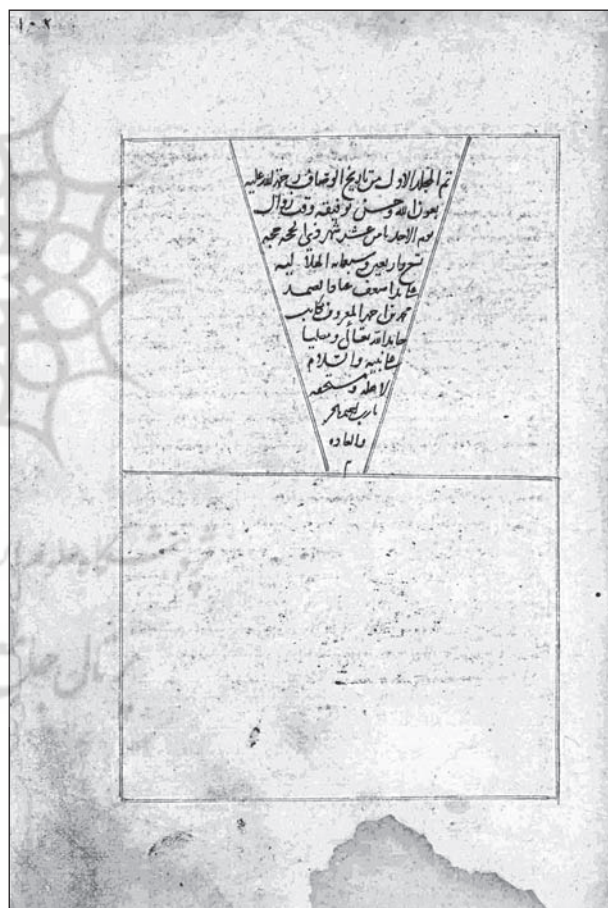 ١٠٢
تم المجلد الاول من تاريخ الوصاف رحمة الله عليه
بعون الله وحسن توفيقه وقت زوال
يوم الاحد ثامن عشر شهر ذی الحجه حجه
تسع واربعين وسبعمائه الهلاليه
اضعف عباد
محمد بن احمد المعروف بكاتب
حامدا لله تعالى ومصليا
نبيه والسلام
لاهله ومستحقه
يا رب
والعاده
م